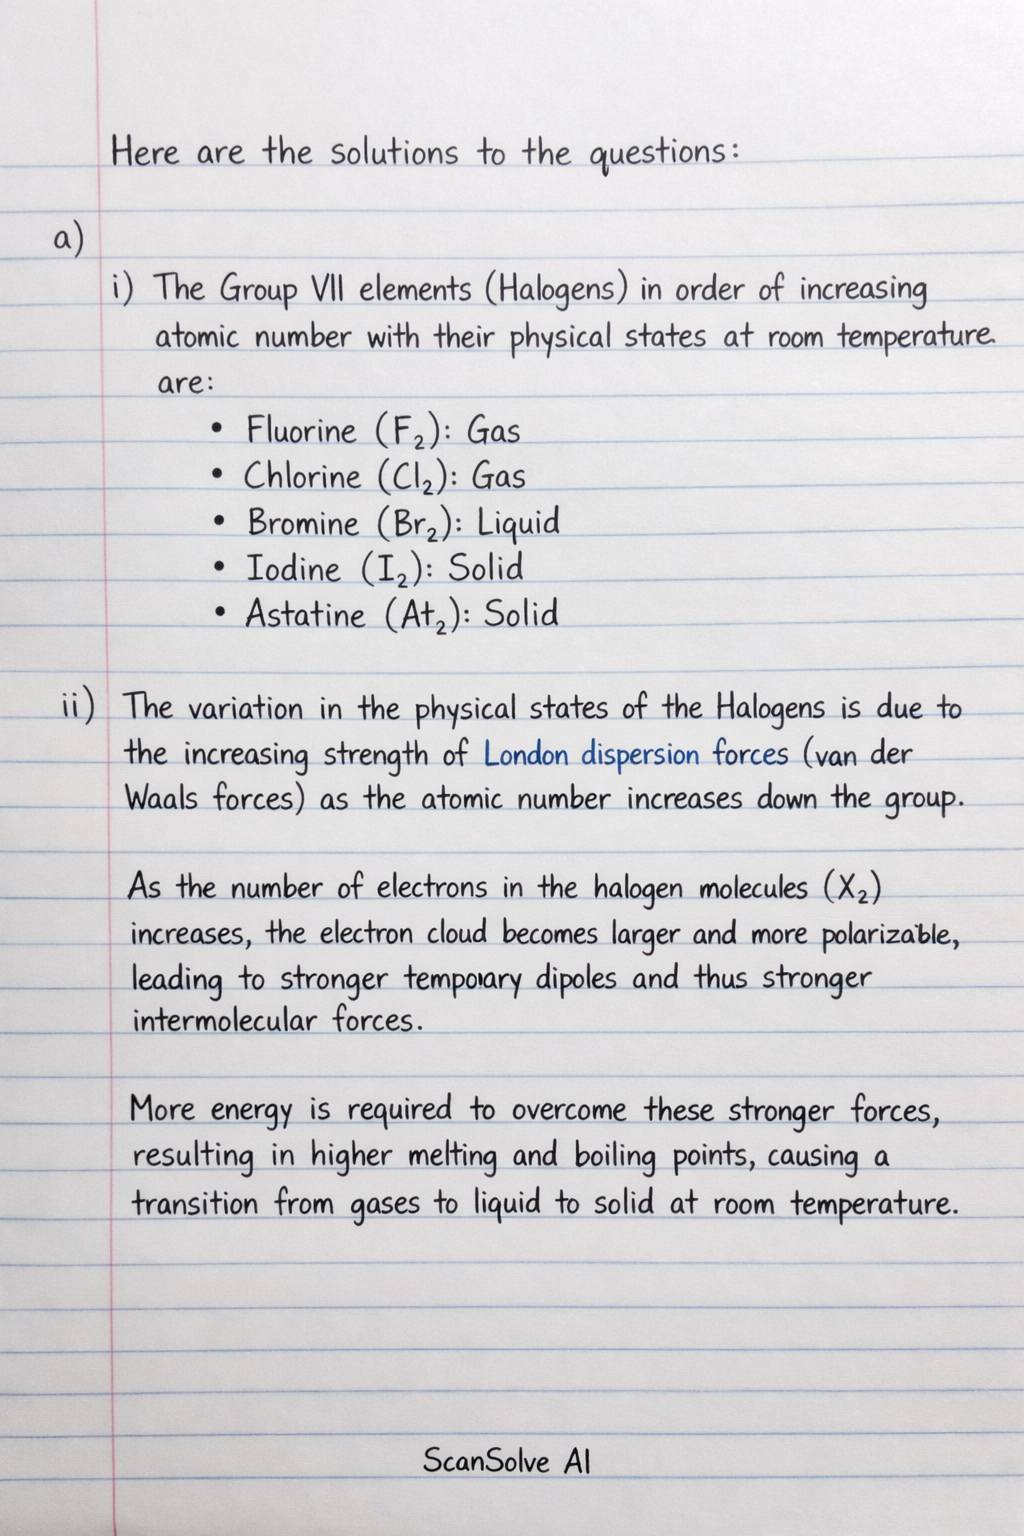 Here are the solutions to the questions:
a)
i) The Group VII elements (Halogens) in order of increasing
atomic number with their physical states at room temperature.
are:
• Fluorine (F₂): Gas
• Chlorine (Cl₂): Gas
• Bromine (Br₂): Liquid
• Iodine (I₂): Solid
• Astatine (At₂): Solid
ii) The variation in the physical states of the Halogens is due to
the increasing strength of London dispersion forces (van der
Waals forces) as the atomic number increases down the group.
As the number of electrons in the halogen molecules (X₂)
increases, the electron cloud becomes larger and more polarizable,
leading to stronger temporary dipoles and thus stronger
intermolecular forces.
More energy is required to overcome these stronger forces,
resulting in higher melting and boiling points, causing a
transition from gases to liquid to solid at room temperature.
ScanSolve AI